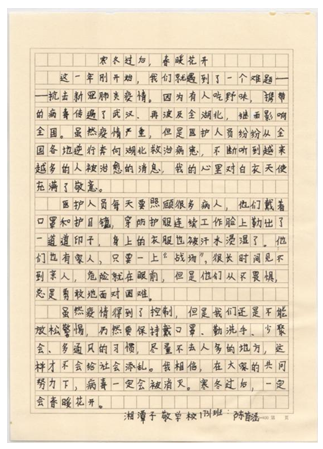 寒冬过后，春暖花开
这一年刚开始，我们就遇到了一个难题——
抗击新冠肺炎疫情。因为有人吃野味，携带
的病毒传遍了武汉，再波及全湖北，继而影响
全国。虽然疫情严重，但是医护人员纷纷从全
国各地逆行奔向湖北救治病患，不断听到越来
越多的人被治愈的消息，我的心里对白衣天使
充满了敬意。
医护人员每天要照顾很多病人，他们戴着
口罩和护目镜，穿防护服连续工作脸上勒出了
一道道印子，身上的衣服也被汗水浸湿了。他
们也有家人，只要一上“战场”，很长时间见不
到亲人，危险就在眼前，但是他们从不畏惧，
总是勇敢地面对困难。
虽然疫情得到了控制，但是我们还是不能
放松警惕，仍然要保持戴口罩、勤洗手、少聚
会、多通风的习惯，尽量不去人多的地方，这
样才不会给社会添乱。我相信，在大家的共同
努力下，病毒一定会被消灭。寒冬过后，一定
会春暖花开。
湘潭子敬学校 班：陈